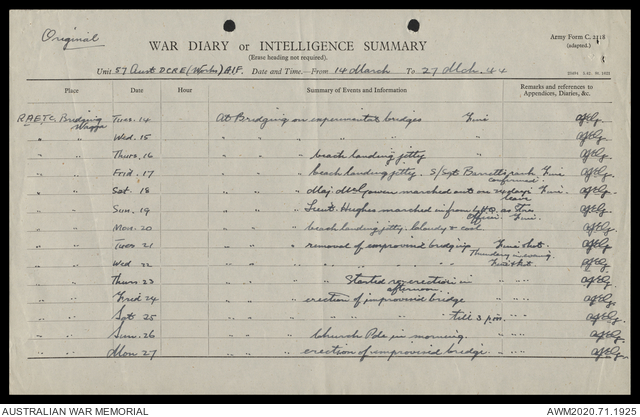 Original
WAR DIARY or INTELLIGENCE SUMMARY
(Erase heading not required).
Army Form C. 2118
(adapted.)
Unit 57 Aust DCRE (Works) AIF. Date and Time—From 14 March To 27 Mch. 44
Place Date Hour Summary of Events and Information Remarks and references to Appendices, Diaries, &c.
RAETC Bridging Wagga Tues. 14 At Bridging on experimental bridges Fine
" " Wed. 15 " " " " "
" " Thurs. 16 " " " beach landing jetty "
" " Frid. 17 " " " beach landing jetty. S/Sgt Barrett's rank confirmed. Fine
" " Sat 18 " " " Maj. McGowen marched out on leave Fine.
" " Sun. 19 " " " Lieut. Hughes marched in from as Officer Fine.
" " Mon. 20 " " " beach landing jetty. Cloudy & cool
" " Tues 21 " " " removal of improvised bridging Fine & hot.
" " Wed 22 " " " " " Thundery in evening. Fine & hot.
" " Thurs 23 " " Started re-erection in afternoon " "
" " Fred 24 " " " erection of improvised bridge " "
" " Sat 25 " " " " " till 3 pm. " "
" " Sun. 26 " " Church Pde in morning. " "
" " Mon 27 " " " erection of improvised bridge. " "
AUSTRALIAN WAR MEMORIAL
AWM2020.71.1925